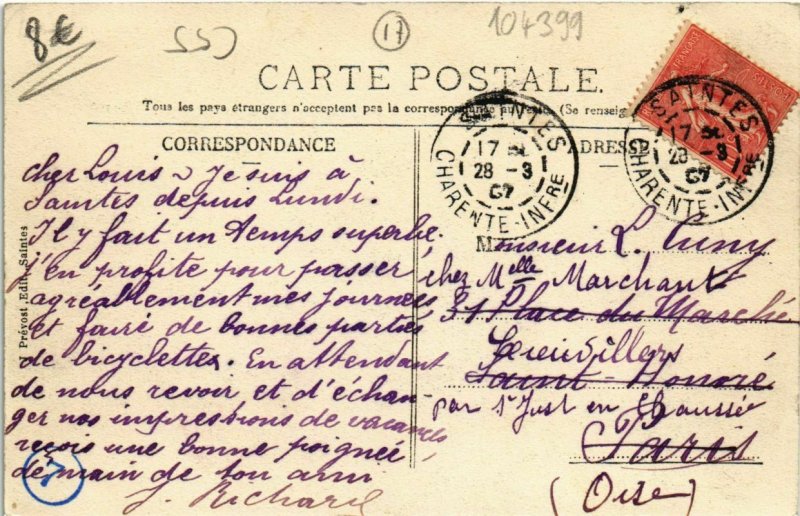 8€
55J
17
104399
CARTE POSTALE.
Tous les pays étrangers n'acceptent pas la correspondance au verso. (Se renseig
CORRESPONDANCE
ADRESSE
SAINTES
17
28 -3
07
CHARENTE-INFRE
SAINTES
17
28 -3
07
CHARENTE-INFRE
POSTES
Prévost, Edit. Saintes
cher Louis ~ Je suis à
Saintes depuis Lundi.
Il y fait un temps superbe.
j'en profite pour passer
agréablement mes journées
et faire de bonnes parties
de bicyclettes. En attendant
de nous revoir et d'échan-
ger nos impressions de vacances,
reçois une bonne poignée
de main de ton ami
J. Richard
Monsieur L. Cuny
chez Melle Marchant
31 Place du Marché
Saint-Honoré
par St Just en Chaussée
Paris
(Oise)